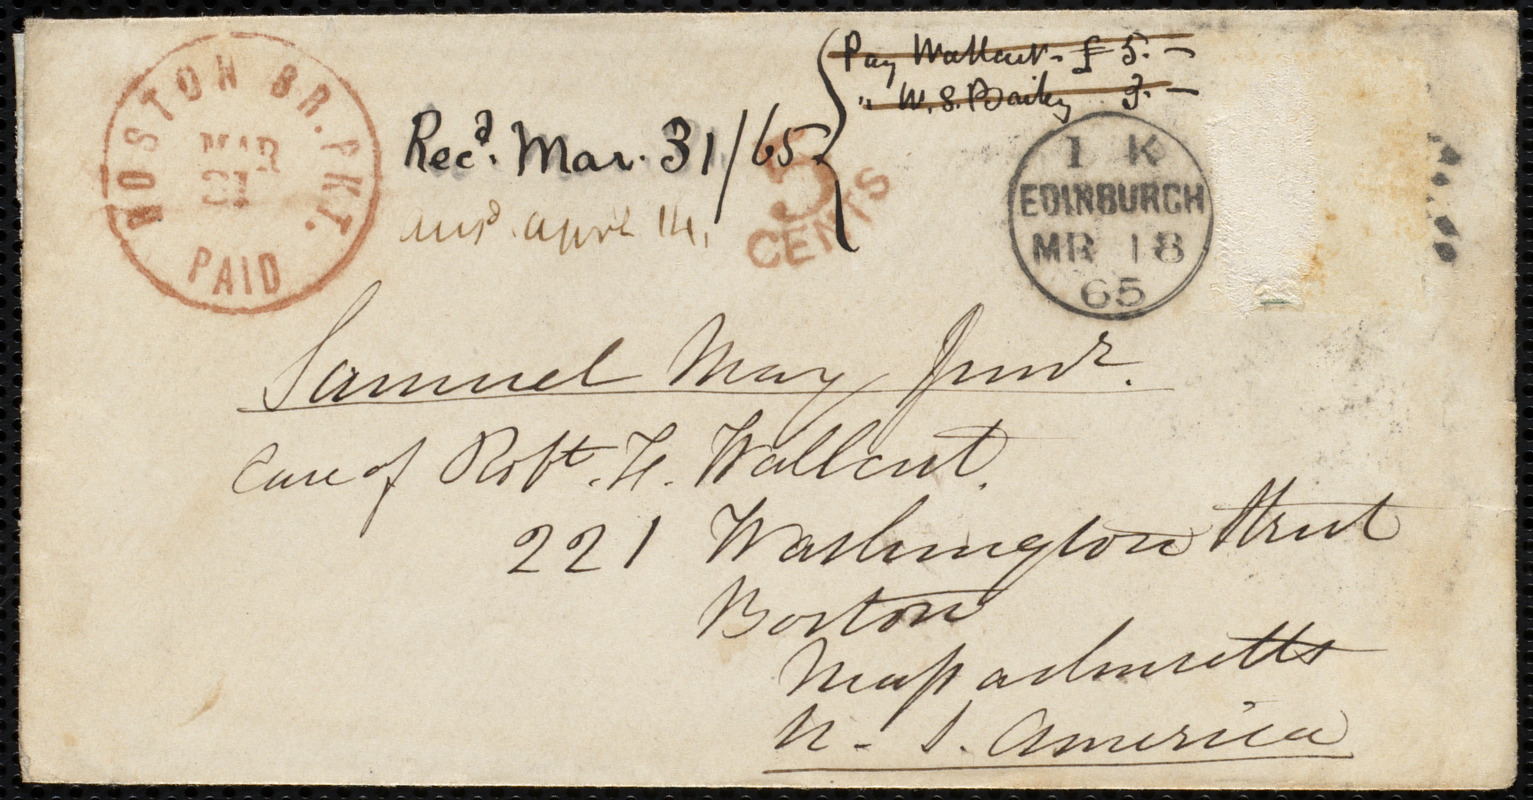 BOSTON BR. PKT.
MAR
31
PAID
Recd. Mar. 31/65.
ansd. April 14.
Pay Wallcut. £5. —
" W. S. Bailey 3. —
5
CENTS
1 K
EDINBURGH
MR 18
65
Samuel May Junr.
Care of Robt. F. Wallcut.
221 Washington Street
Boston
Massachusetts
U. S. America